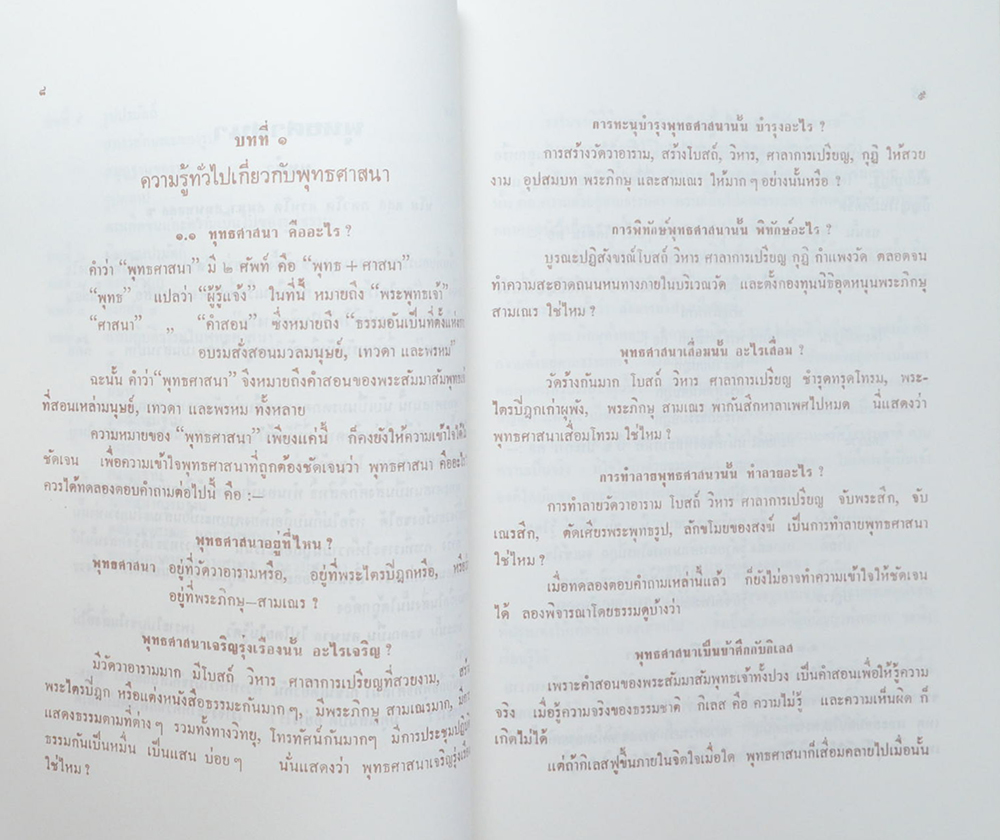 ๘
บทที่ ๑
ความรู้ทั่วไปเกี่ยวกับพุทธศาสนา
๑.๑ พุทธศาสนา คืออะไร ?
คำว่า “พุทธศาสนา” มี ๒ ศัพท์ คือ “พุทธ + ศาสนา”
“พุทธ” แปลว่า “ผู้รู้แจ้ง” ในที่นี้ หมายถึง “พระพุทธเจ้า”
“ศาสนา” ,, “คำสอน” ซึ่งหมายถึง “ธรรมอันเป็นที่ตั้งแห่ง
อบรมสั่งสอนมวลมนุษย์, เทวดา และพรหม”
ฉะนั้น คำว่า “พุทธศาสนา” จึงหมายถึงคำสอนของพระสัมมาสัมพุทธ
ที่สอนเหล่ามนุษย์, เทวดา และพรหม ทั้งหลาย
ความหมายของ “พุทธศาสนา” เพียงแค่นี้ ก็คงยังให้ความเข้าใจได้
ชัดเจน เพื่อความเข้าใจพุทธศาสนาที่ถูกต้องชัดเจนว่า พุทธศาสนา คือ
ควรได้ทดลองตอบคำถามต่อไปนี้ คือ :—
พุทธศาสนาอยู่ที่ไหน ?
พุทธศาสนา อยู่ที่วัดวาอารามหรือ, อยู่ที่พระไตรปิฎกหรือ,
อยู่ที่พระภิกษุ—สามเณร ?
พุทธศาสนาเจริญรุ่งเรืองนั้น อะไรเจริญ ?
มีวัดวาอารามมาก มีโบสถ์ วิหาร ศาลาการเปรียญที่สวยงาม,
พระไตรปิฎก หรือแต่งหนังสือธรรมะกันมากๆ, มีพระภิกษุ สามเณรมาก,
แสดงธรรมตามที่ต่างๆ รวมทั้งทางวิทยุ, โทรทัศน์กันมากๆ มีการประชุมปฏิบัติ
ธรรมกันเป็นหมื่น เป็นแสน บ่อยๆ นั่นแสดงว่า พุทธศาสนาเจริญรุ่งเรือง
ใช่ไหม ?
๙
การทะนุบำรุงพุทธศาสนานั้น บำรุงอะไร ?
การสร้างวัดวาอาราม, สร้างโบสถ์, วิหาร, ศาลาการเปรียญ, กุฏิ ให้สวย
งาม อุปสมบท พระภิกษุ และสามเณร ให้มากๆ อย่างนั้นหรือ ?
การพิทักษ์พุทธศาสนานั้น พิทักษ์อะไร ?
บูรณะปฏิสังขรณ์โบสถ์ วิหาร ศาลาการเปรียญ กุฏิ กำแพงวัด ตลอดจน
ทำความสะอาดถนนหนทางภายในบริเวณวัด และตั้งกองทุนนิธิอุดหนุนพระภิกษุ
สามเณร ใช่ไหม ?
พุทธศาสนาเสื่อมนั้น อะไรเสื่อม ?
วัดร้างกันมาก โบสถ์ วิหาร ศาลาการเปรียญ ชำรุดทรุดโทรม, พระ-
ไตรปิฎกเก่าผุพัง, พระภิกษุ สามเณร พากันสึกหาลาเพศไปหมด นี่แสดงว่า
พุทธศาสนาเสื่อมโทรม ใช่ไหม ?
การทำลายพุทธศาสนานั้น ทำลายอะไร ?
การทำลายวัดวาอาราม โบสถ์ วิหาร ศาลาการเปรียญ จับพระสึก, จับ
เณรสึก, ตัดเศียรพระพุทธรูป, ลักขโมยของสงฆ์ เป็นการทำลายพุทธศาสนา
ใช่ไหม ?
เมื่อทดลองตอบคำถามเหล่านี้แล้ว ก็ยังไม่อาจทำความเข้าใจให้ชัดเจน
ได้ ลองพิจารณาโดยธรรมดูบ้างว่า
พุทธศาสนาเป็นข้าศึกกับกิเลส
เพราะคำสอนของพระสัมมาสัมพุทธเจ้าทั้งปวง เป็นคำสอนเพื่อให้รู้ความ
จริง เมื่อรู้ความจริงของธรรมชาติ กิเลส คือ ความไม่รู้ และความเห็นผิด ก็
เกิดไม่ได้
แต่ถ้ากิเลสฟูขึ้นภายในจิตใจเมื่อใด พุทธศาสนาก็เสื่อมคลายไปเมื่อนั้น